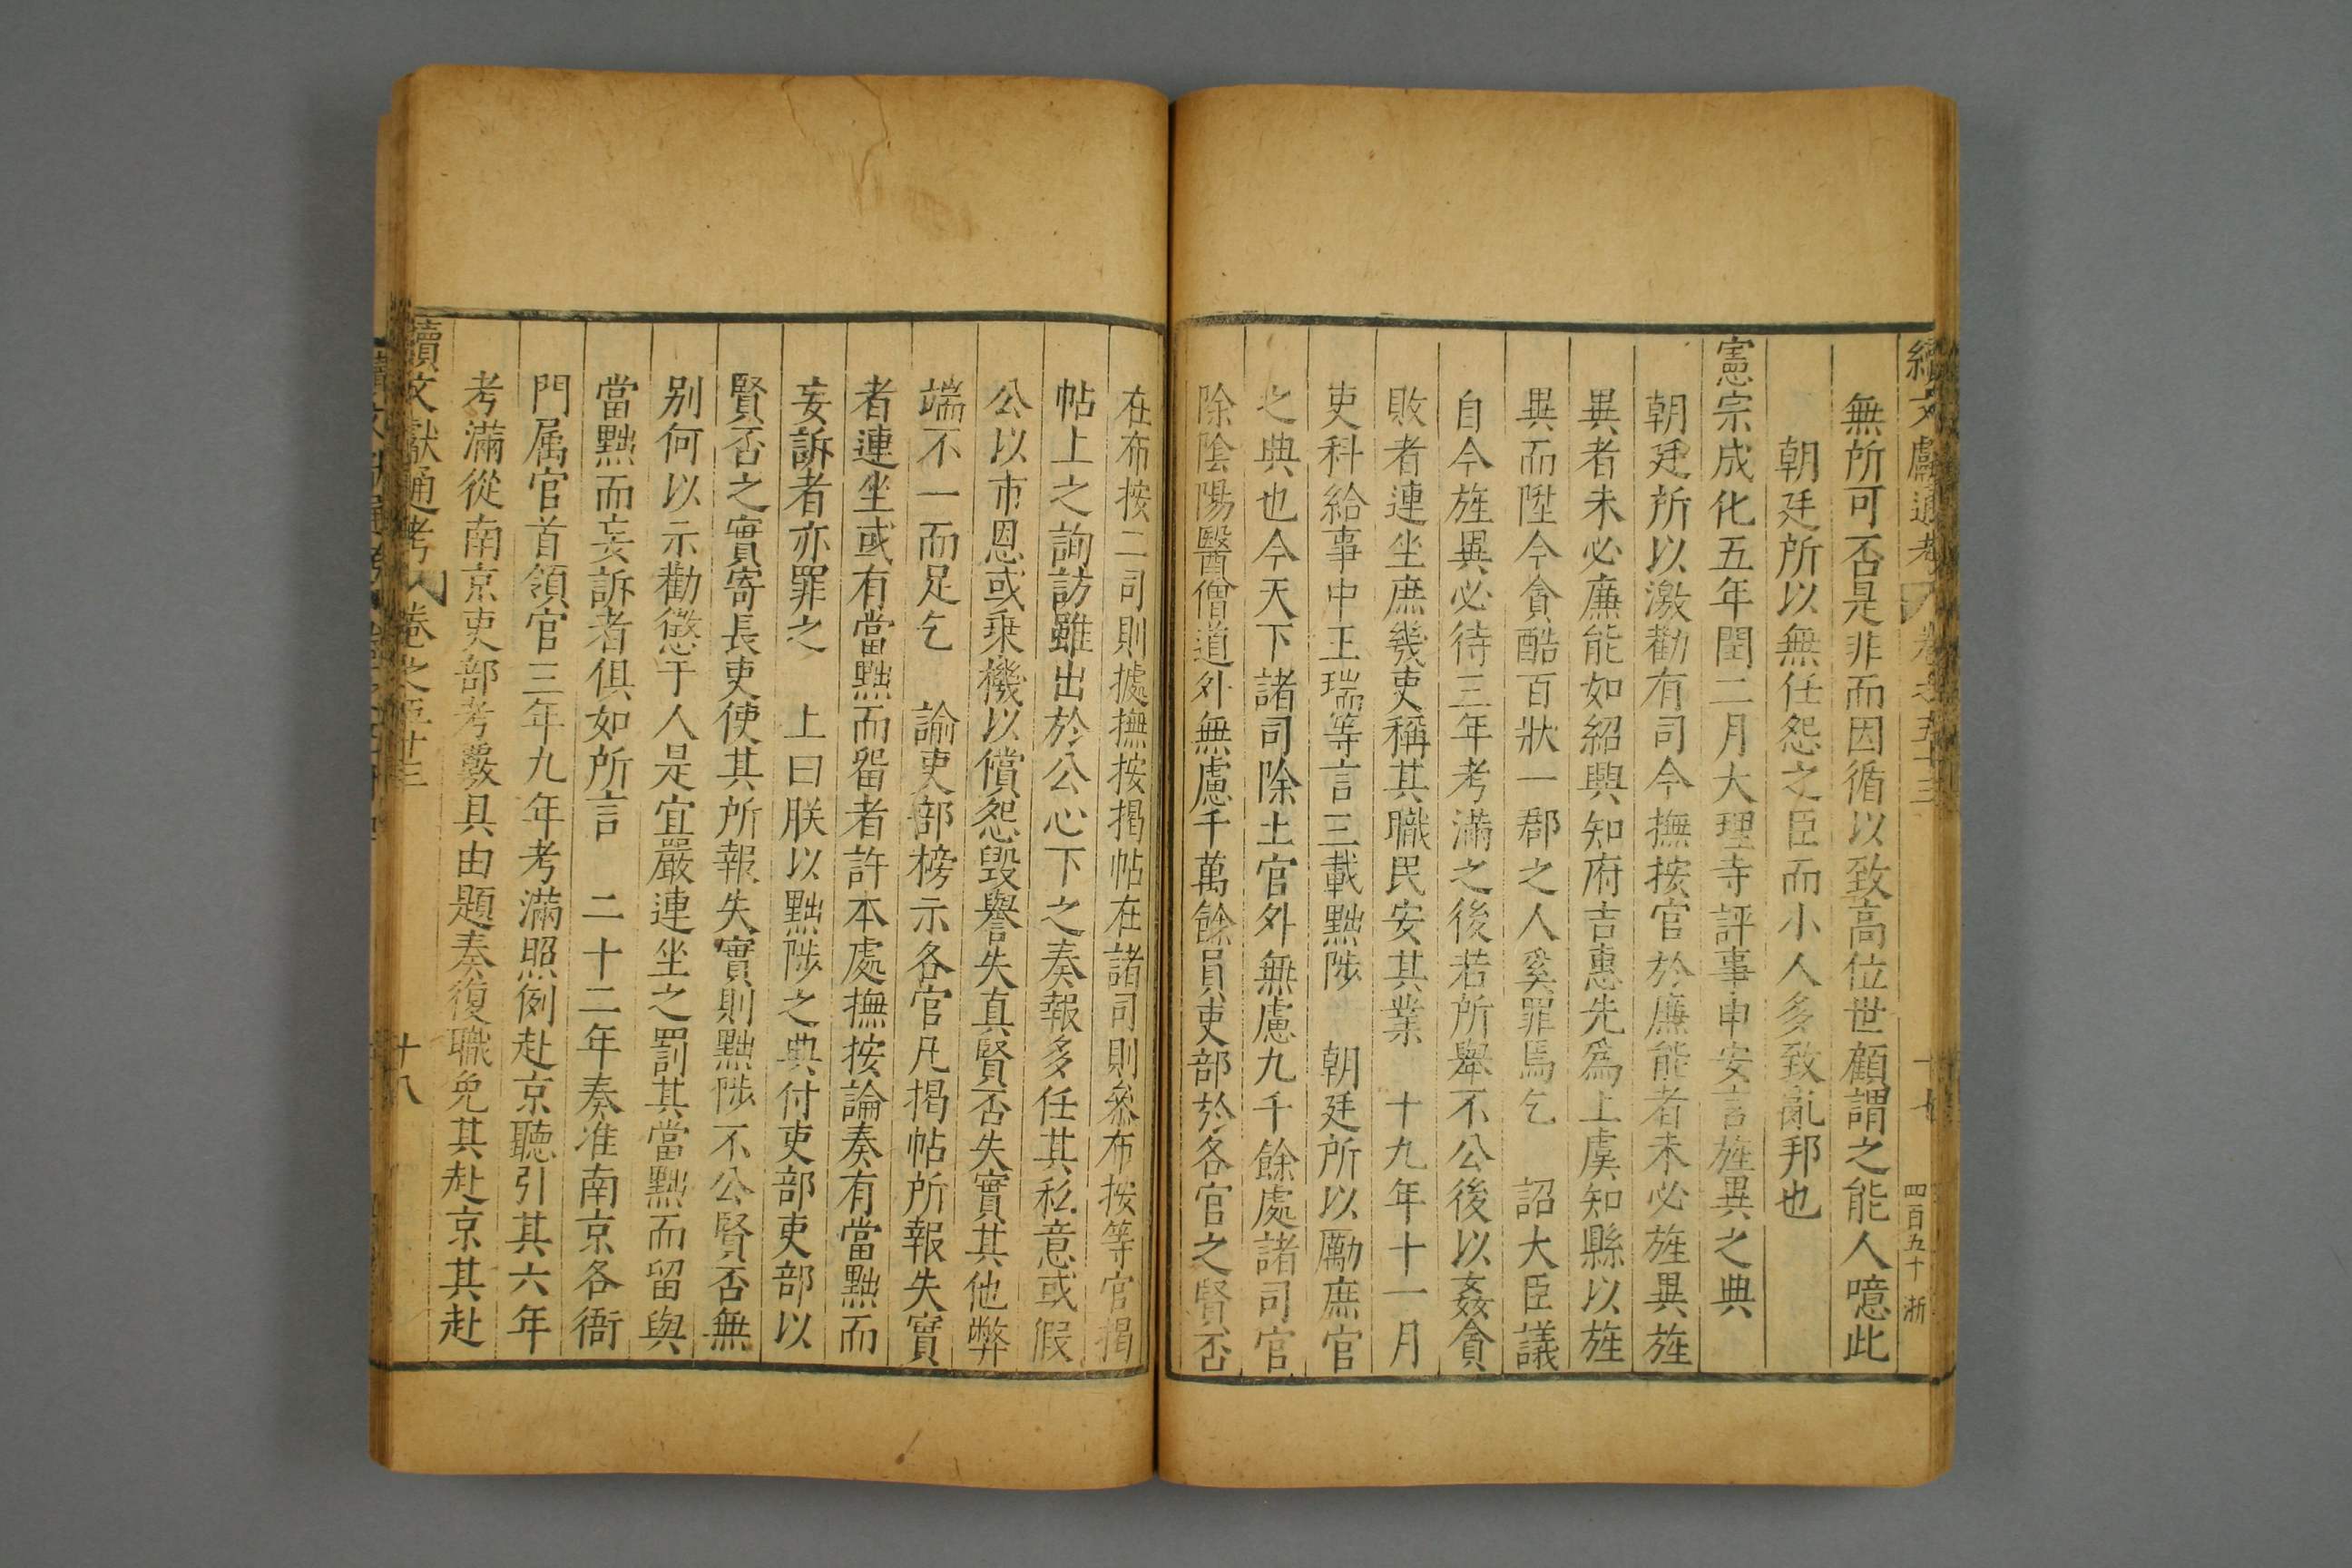 續文獻通考 卷之五十三 十七 四百五十 浙
無所可否是非而因循以致高位世顧謂之能人噫此
朝廷所以無任怨之臣而小人多致亂邦也
憲宗成化五年閏二月大理寺評事申安言旌異之典
朝廷所以激勸有司今撫按官於廉能者未必旌異旌
異者未必廉能如紹興知府吉惠先爲上虞知縣以旌
異而陞今貪酷百狀一郡之人奚罪焉乞 詔大臣議
自今旌異必待三年考滿之後若所舉不公後以姦貪
敗者連坐庶幾吏稱其職民安其業 十九年十一月
吏科給事中王瑞等言三載黜陟 朝廷所以勵庶官
之典也今天下諸司除土官外無慮九千餘處諸司官
除陰陽醫僧道外無慮千萬餘員吏部於各官之賢否
在布按二司則據撫按揭帖在諸司則叅布按等官揭
帖上之詢訪雖出於公心下之奏報多任其私意或假
公以市恩或乗機以償怨毀譽失真賢否失實其他弊
端不一而足乞 諭吏部榜示各官凡揭帖所報失實
者連坐或有當黜而畱者許本處撫按論奏有當黜而
妄訴者亦罪之 上曰朕以黜陟之典付吏部吏部以
賢否之實寄長吏使其所報失實則黜陟不公賢否無
别何以示勸懲于人是宜嚴連坐之罰其當黜而留與
當黜而妄訴者俱如所言 二十二年奏准南京各衙
門属官首領官三年九年考滿照例赴京聽引其六年
考滿從南京吏部考覈具由題奏復職免其赴京其赴
續文獻通考 卷之五十三 十八